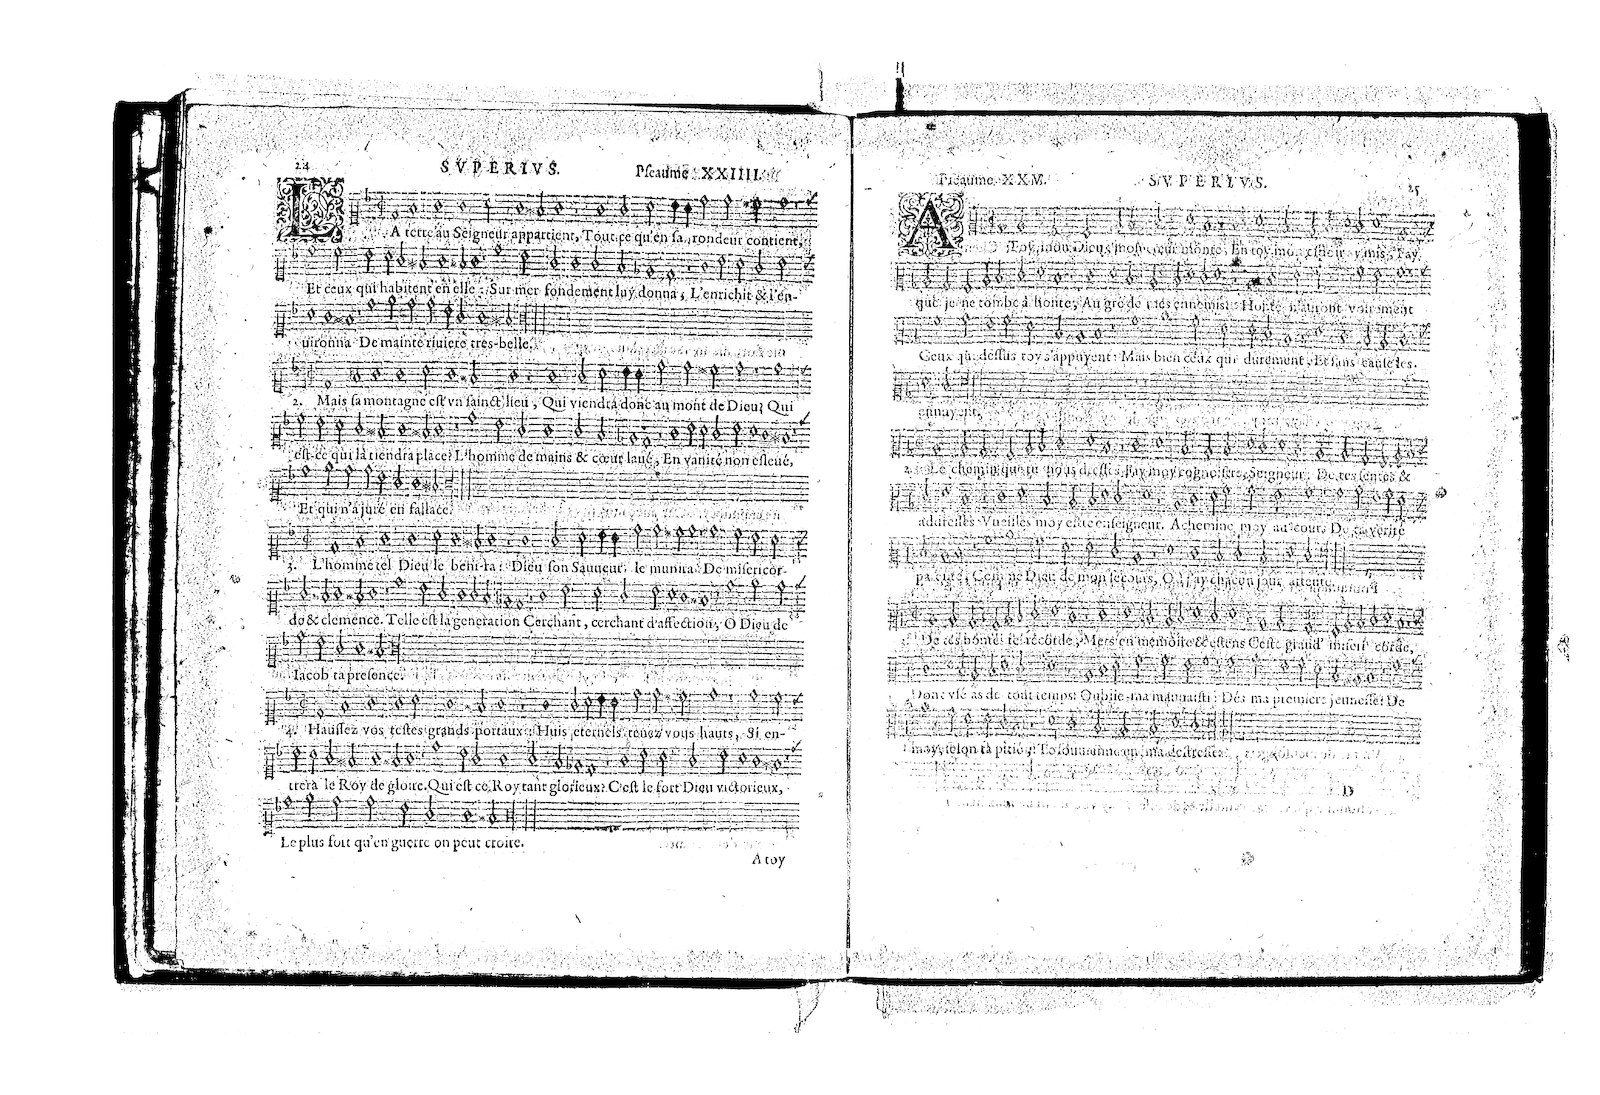 24
SVPERIVS.
Pſeaume XXIIII.
LA terre au Seigneur appartient, Tout ce qu'en ſa rondeur contient,
Et ceux qui habitent en elle: Sur mer fondement luy donna, L'enrichit & l'en-
uironna De mainte riuiere tres-belle.
2. Mais ſa montagne eſt vn ſainct lieu, Qui viendra donc au mont de Dieu? Qui
eſt-ce qui là tiendra place? L'homme de mains & cœur laué, En vanité non eſleué,
Et qui n'a juré en fallace.
3. L'homme tel Dieu le benira: Dieu ſon Sauueur, le munira De miſericor-
de & clemence. Telle eſt la generation Cerchant, cerchant d'affection, O Dieu de
Iacob ta preſence.
4. Hauſſez vos teſtes grands portaux: Huis eternels tenez vous hauts, Si en-
trera le Roy de gloire. Qui eſt ce Roy tant glorieux? C'eſt le fort Dieu victorieux,
Le plus fort qu'en guerre on peut croire.
A toy
Pſeaume XXV.
SVPERIVS.
25
A Toy, mon Dieu, mon cœur monte, En toy mon eſpoir y mis, Fay
que je ne tombe à honte, Au gré de mes ennemis: Honte n'auront voirement
Ceux qui deſſus toy s'appuyent: Mais bien ceux qui durement, Et ſans cauſe les
ennuyent.
2. Le chemin que tu nous dreſſes, Fay moy cognoiſtre, Seigneur: De tes ſentes &
addreſſes Vueilles moy eſtre enſeigneur. Achemine moy au cours De ta verité
Dieu de mon ſecours, chacun jour attente.
De tes bontez te recorde, Mets en memoire & eſtens Ceſte grand' miſericorde,
Donc vſé as de tout temps: Oublie ma mauuaiſti: Dés ma premiere jeuneſſe: De
moy, ſelon ta pitié,
D